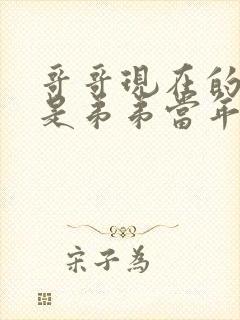 哥哥現在的
是弟弟當年
宋子為